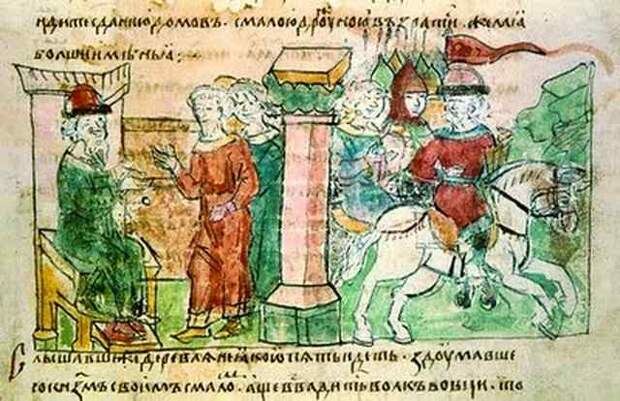 идѣте с данию домовъ · с малою дроужиною възврати · желаꙗ
болшии имѣньꙗ :
Слышавше же деревлѧне ꙗко опѧть идеть · здоумавше
со кнѧземъ своимъ маломъ · аще въвадить волкъ в овци · то